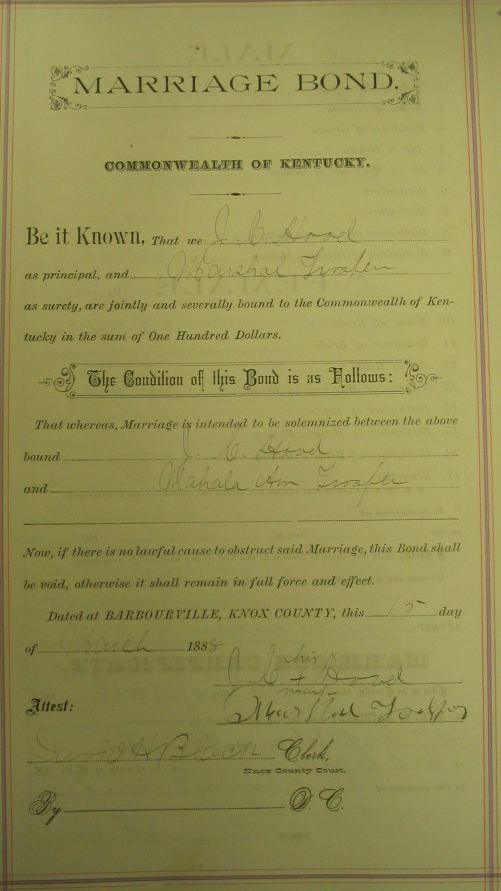 MARRIAGE BOND.
COMMONWEALTH OF KENTUCKY.
Be it Known, That we J. C. Hood
as principal, and Marshal
as surety, are jointly and severally bound to the Commonwealth of Ken-
tucky in the sum of One Hundred Dollars.
The Condition of this Bond is as Follows:
That whereas, Marriage is intended to be solemnized between the above
bound J. C. Hood
and Mahala Ann
Now, if there is no lawful cause to obstruct said Marriage, this Bond shall
be void, otherwise it shall remain in full force and effect.
Dated at BARBOURVILLE, KNOX COUNTY, this 15 day
of March 1888
his
J. C. + Hood
mark
Attest:
David H Black Clerk,
Knox County Court.
By D. C.